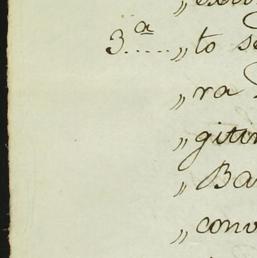 3.ª..... „to se
„ra
„gitim
„Ba
„conv